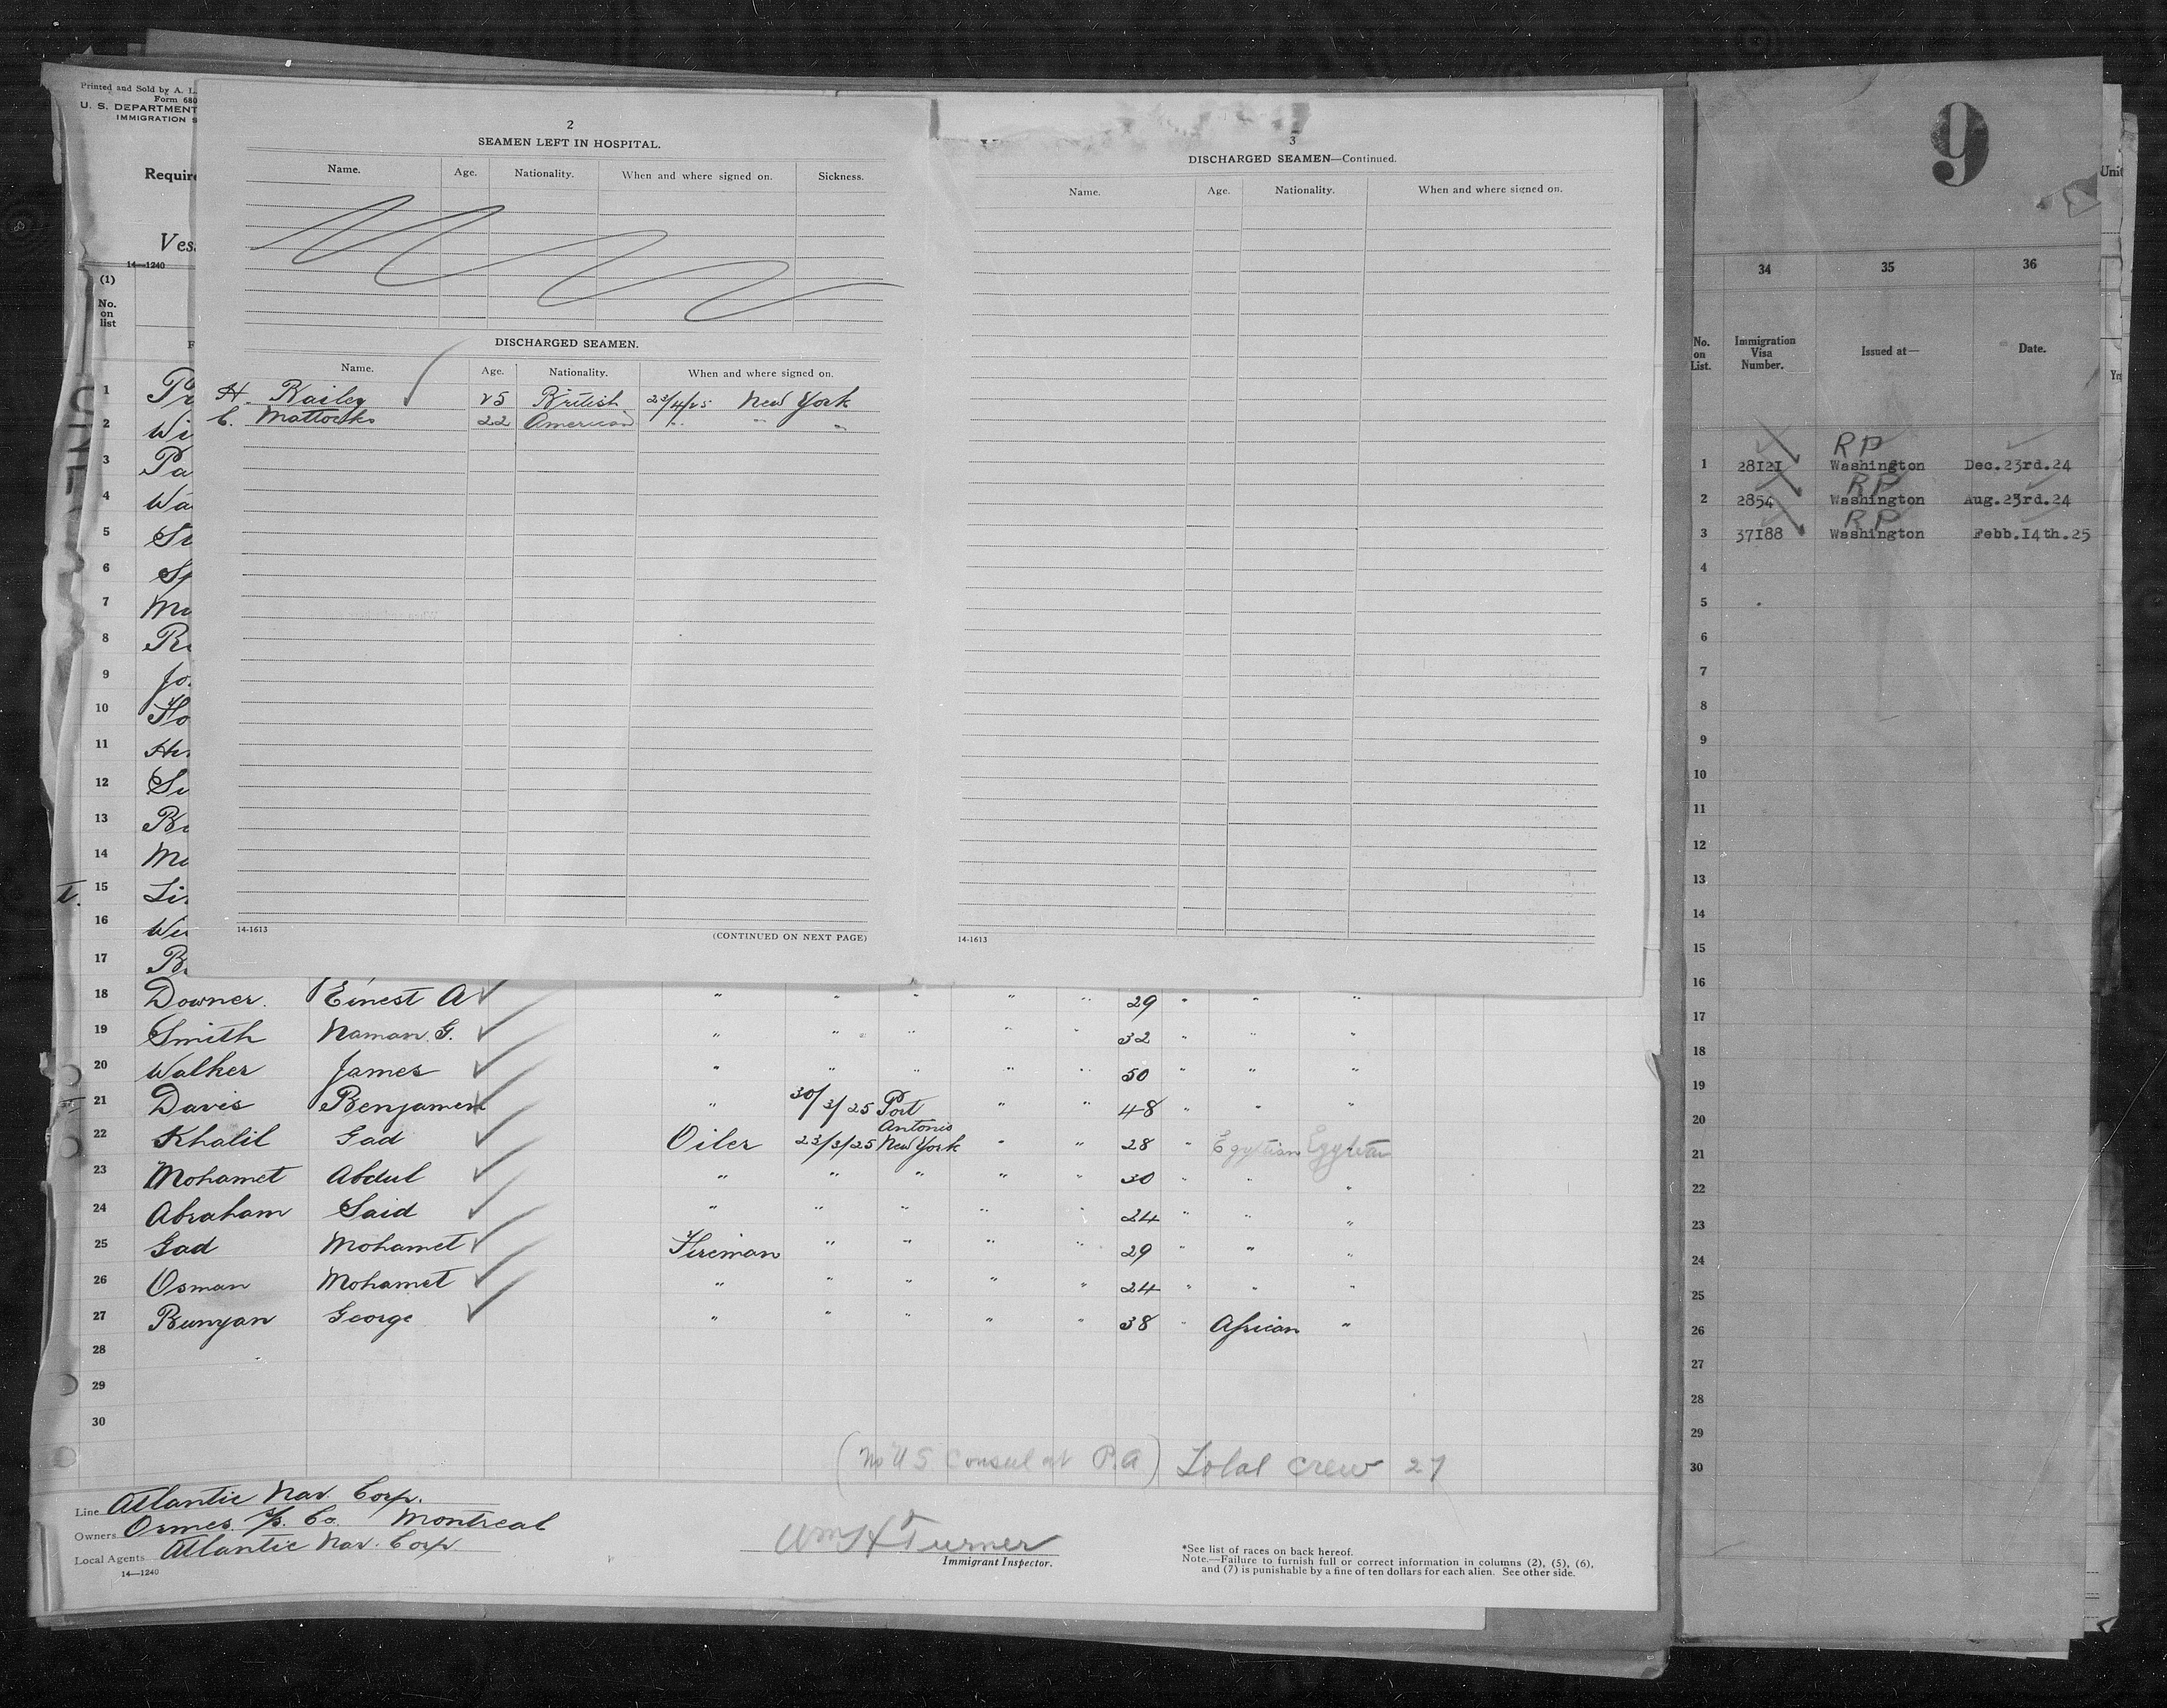 Printed and Sold by A. L.
Form 680
U. S. DEPARTMENT
IMMIGRATION S
Require
Ves
14—1240
(1)
No. on list
F
2
SEAMEN LEFT IN HOSPITAL.
Name. Age. Nationality. When and where signed on. Sickness.
DISCHARGED SEAMEN.
Name. Age. Nationality. When and where signed on.
H. Railey 25 British 23/4/25 New York
C. Mattocks 22 American " " "
14-1613
(CONTINUED ON NEXT PAGE)
3
DISCHARGED SEAMEN—Continued.
Name. Age. Nationality. When and where signed on.
14-1613
1 Pr
2 Wi
3 Pa
4 Wa
5
6 Sp
7
8
9 Jo
10 Ho
11
12
13
14
15 Li
16
17
18 Downer. Ernest A " " " " " 29 " " "
19 Smith Naman G. " " " " " 32 " " "
20 Walker James " " " " " 50 " " "
21 Davis Benjamen " 30/3/25 Port Antonio " " 48 " " "
22 Khalil Gad Oiler 23/3/25 New York " " 28 " Egyptian Egyptian
23 Mohamet Abdul " " " " " 30 " " "
24 Abraham Said " " " " " 24 " " "
25 Gad Mohamet Fireman " " " " 29 " " "
26 Osman Mohamet " " " " " 24 " " "
27 Bunyan George " " " " " 38 " African "
28
29
30
(No U S Consul at P.A) Total crew 27
Line Atlantic Nav. Corp.
Owners Ormes S/S. Co. Montreal
Local Agents Atlantic Nav. Corp.
14—1240
Wm H Turner
Immigrant Inspector.
*See list of races on back hereof.
Note.—Failure to furnish full or correct information in columns (2), (5), (6),
and (7) is punishable by a fine of ten dollars for each alien. See other side.
9
34 35 36
No. on List. Immigration Visa Number. Issued at— Date.
RP
1 28121 Washington Dec.23rd.24
RP
2 2854 Washington Aug.23rd.24
RP
3 37188 Washington Febb.14th.25
4
5
6
7
8
9
10
11
12
13
14
15
16
17
18
19
20
21
22
23
24
25
26
27
28
29
30
Unit
Yrs